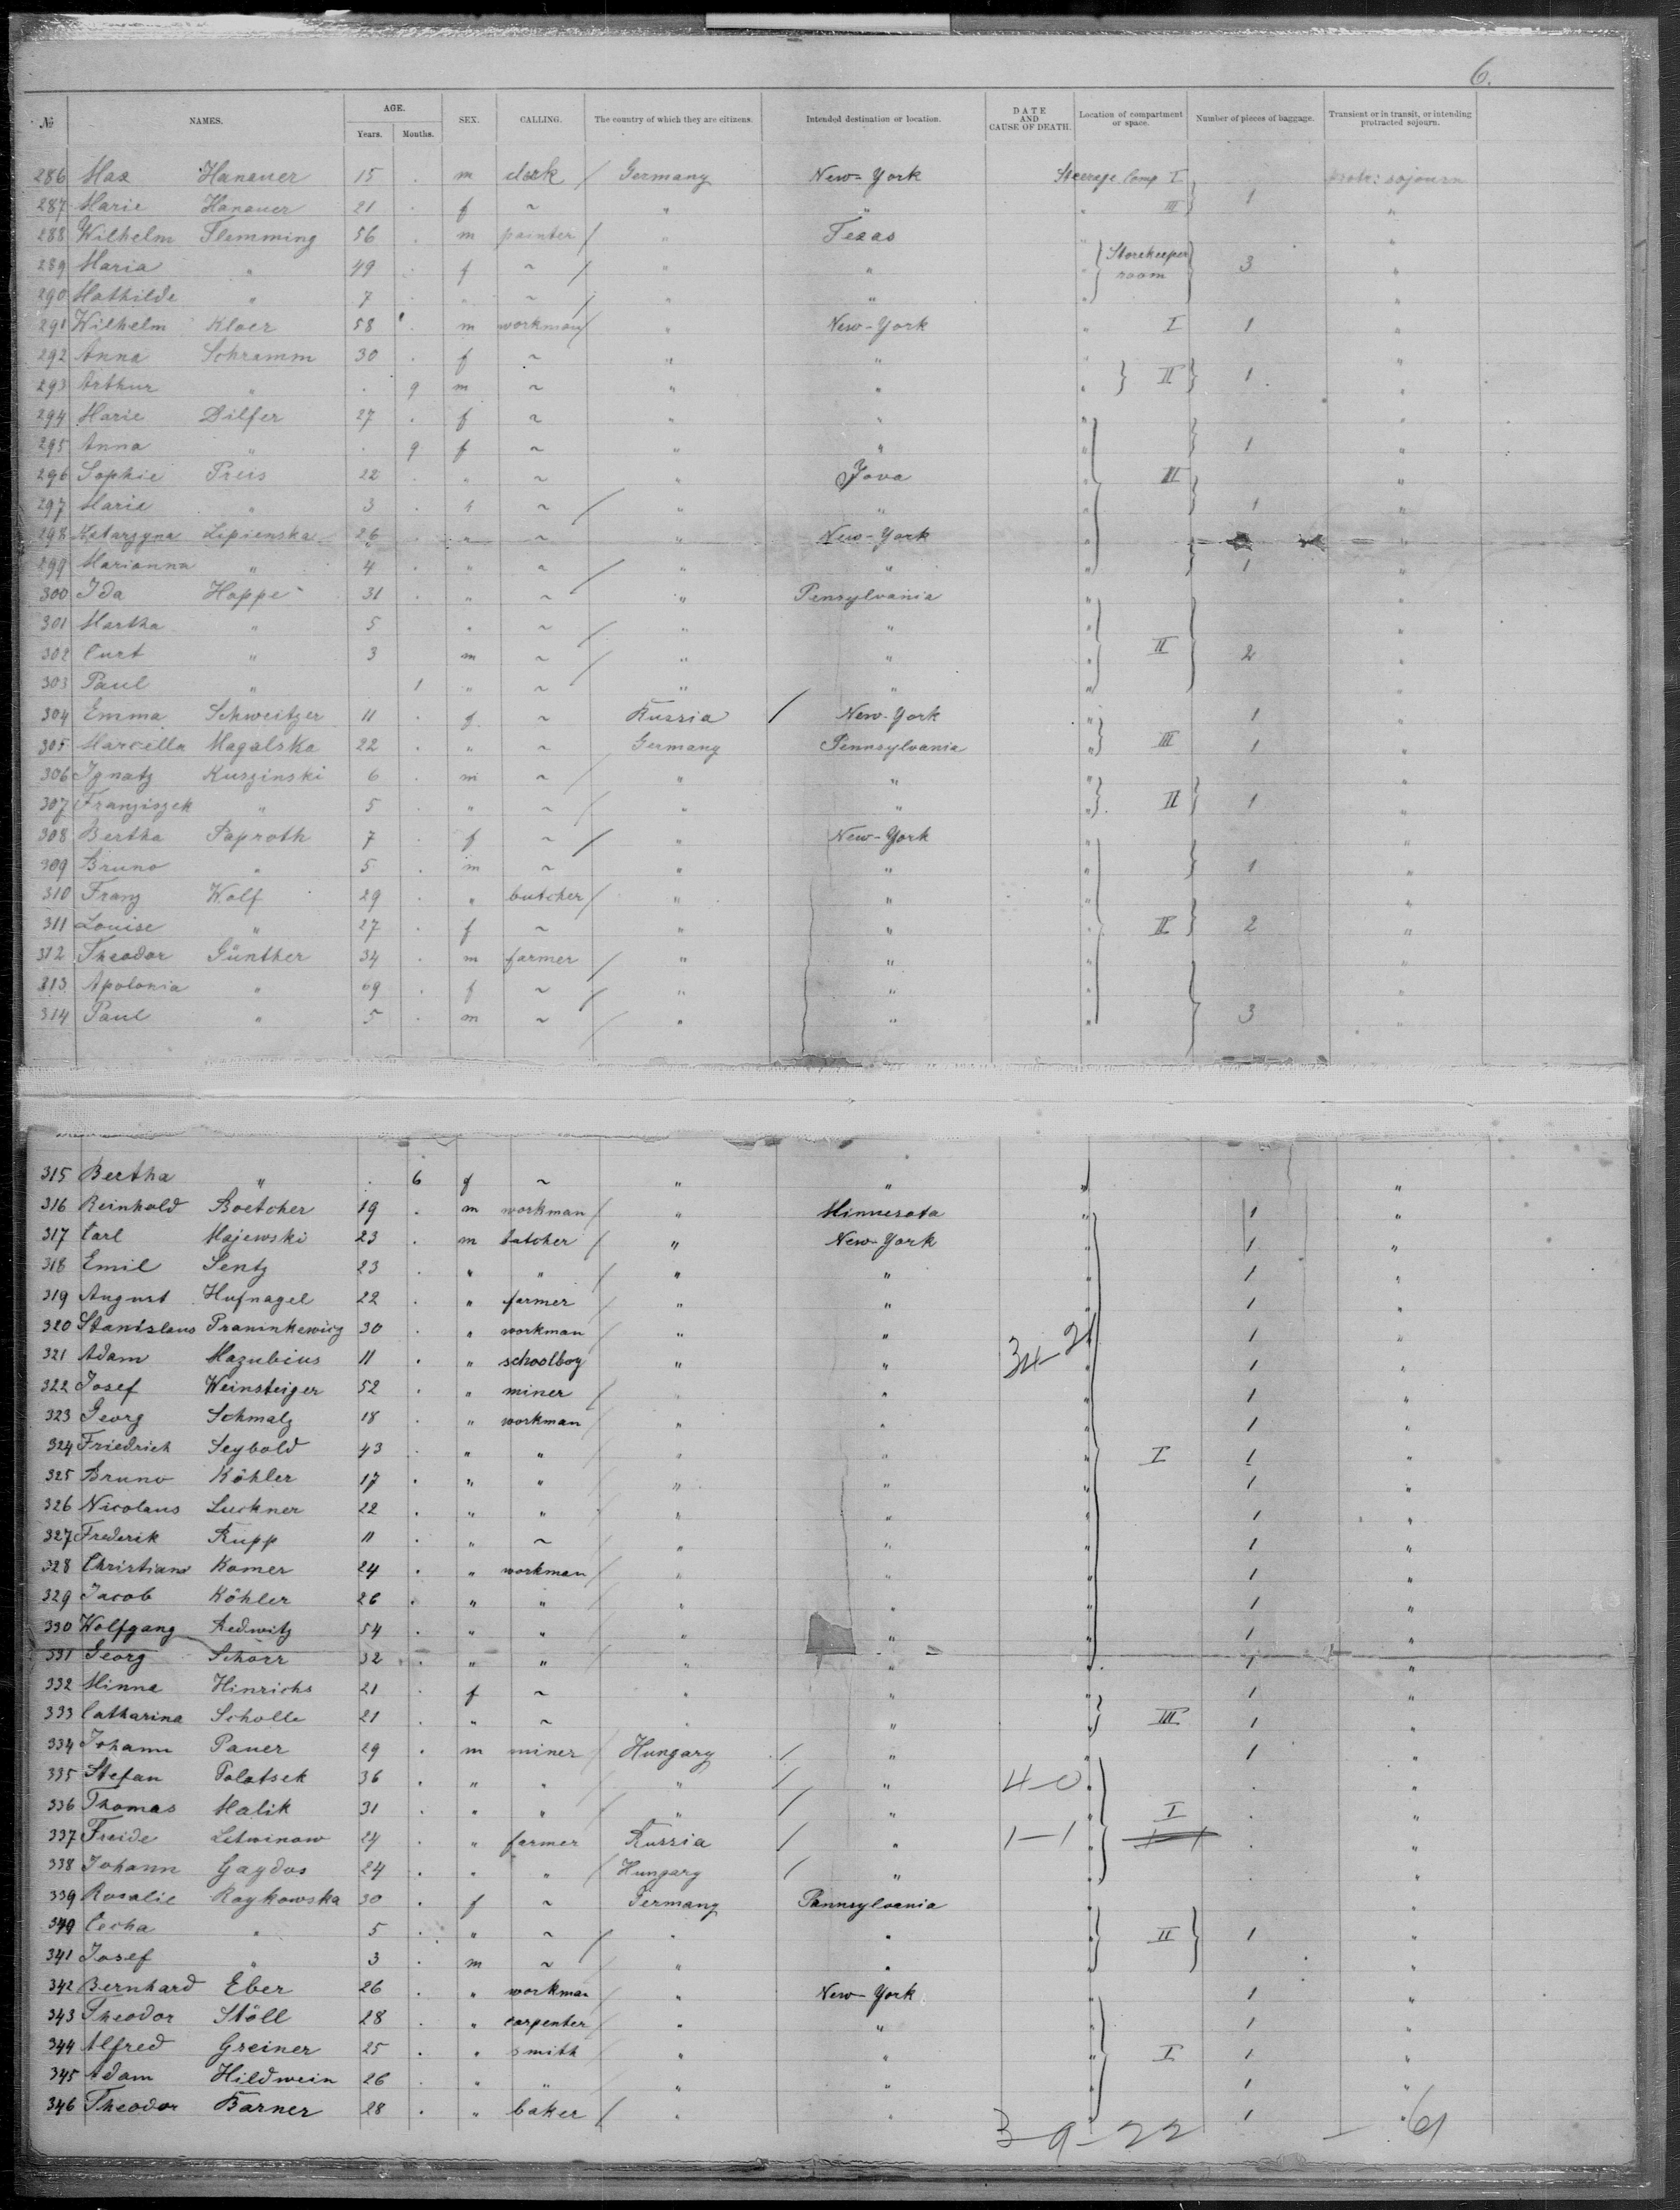 6.
№ NAMES. AGE. Years. Months. SEX. CALLING. The country of which they are citizens. Intended destination or location. DATE AND CAUSE OF DEATH. Location of compartment or space. Number of pieces of baggage. Transient or in transit, or intending protracted sojourn.
286 Max Hanauer 15 . m clerk / Germany New-York Steerage Comp I protr: sojourn
287 Marie Hanauer 21 . f ~ " " " III } 1 "
288 Wilhelm Flemming 56 . m painter / " Texas " "
289 Maria " 49 . f ~ / " " " { Storekeeper room } 3 "
290 Mathilde " 7 . " ~ / " " " "
291 Wilhelm Kloer 58 . m workman / " New-York " I 1 "
292 Anna Schramm 30 . f ~ " " " "
293 Arthur " . 9 m ~ " " " } II } 1 "
294 Marie Dilfer 27 . f ~ " " " "
295 Anna " . 9 f ~ " " " } 1 "
296 Sophie Preis 22 . " ~ " Jova " III "
297 Marie " 3 . " ~ / " " " } 1 "
298 Katarzyna Lipienska 26 . " ~ " New-York " "
299 Marianna " 4 . " ~ / " " " } 1 "
300 Ida Hoppe 31 . " ~ " Pensylvania " "
301 Martha " 5 " ~ / " " " "
302 Curt " 3 m ~ / " " " II } 2 "
303 Paul " 1 " ~ " " " "
304 Emma Schweitzer 11 . f ~ Russia / New-York " 1 "
305 Marcella Magalska 22 . " ~ Germany Pennsylvania " } III 1 "
306 Ignatz Kuszinski 6 . m ~ / " " " "
307 Franziszek " 5 . " ~ / " " " } II } 1 "
308 Bertha Paproth 7 . f ~ / " New-York " "
309 Bruno " 5 . m ~ " " " } 1 "
310 Franz Wolf 29 . " butcher / " " " "
311 Louise " 27 . f ~ " " " II } 2 "
312 Theodor Günther 34 . m farmer / " " " "
313 Apolonia " f ~ / " " " "
314 Paul " 5 . m ~ / " " " } 3 "
315 Bertha " . 6 f ~ " " " "
316 Reinhold Boetcher 19 . m workman / " Minnesota " 1 "
317 Carl Majewski 23 . m butcher / " New-York " 1 "
318 Emil Sentz 23 . " " / " " " 1 "
319 August Hufnagel 22 . " farmer / " " " 1 "
320 Stanislaus Praninkewicz 30 . " workman / " " " 1 "
321 Adam Mazubius 11 . " schoolboy " " 34-21 " 1 "
322 Josef Weinsteiger 52 . " miner / " " " 1 "
323 Georg Schmalz 18 . " workman / " " " 1 "
324 Friedrich Seybold 43 . " " / " " " } I 1 "
325 Bruno Köhler 17 . " " / " " " 1 "
326 Nicolaus Luckner 22 . " " / " " " 1 "
327 Frederik Rupp 11 . " ~ " " " 1 "
328 Christians Komer 24 . " workman / " " " 1 "
329 Jacob Köhler 26 . " " / " " " 1 "
330 Wolfgang Redwitz 54 . " " / " " " 1 "
331 Georg Schorr 32 . " " / " " " 1 "
332 Minna Hinrichs 21 . f ~ " " " 1 "
333 Catharina Scholle 21 . " ~ " " " } III 1 "
334 Johann Pauer 29 . m miner / Hungary / " " 1 "
335 Stefan Polatsek 36 . " " / " / " 4-0 " . "
336 Thomas Malik 31 . " " / " / " " I . "
337 Freide Litwinow 24 . " farmer Russia / " 1-1 " . "
338 Johann Gaydos 24 . " " / Hungary / " " . "
339 Rosalie Raykowska 30 . f ~ Germany Pannsylvania " "
340 Cecha " 5 . " ~ / " " " } II } 1 "
341 Josef " 3 . m ~ / " " " "
342 Bernhard Eber 26 . " workman / " New-York " 1 "
343 Theodor Stöll 28 . " carpenter / " " " 1 "
344 Alfred Greiner 25 . " smith / " " " } I 1 "
345 Adam Hildwein 26 . " " / " " " 1 "
346 Theodor Barner 28 . " baker / " " " 1 "
3-9-22 - 61